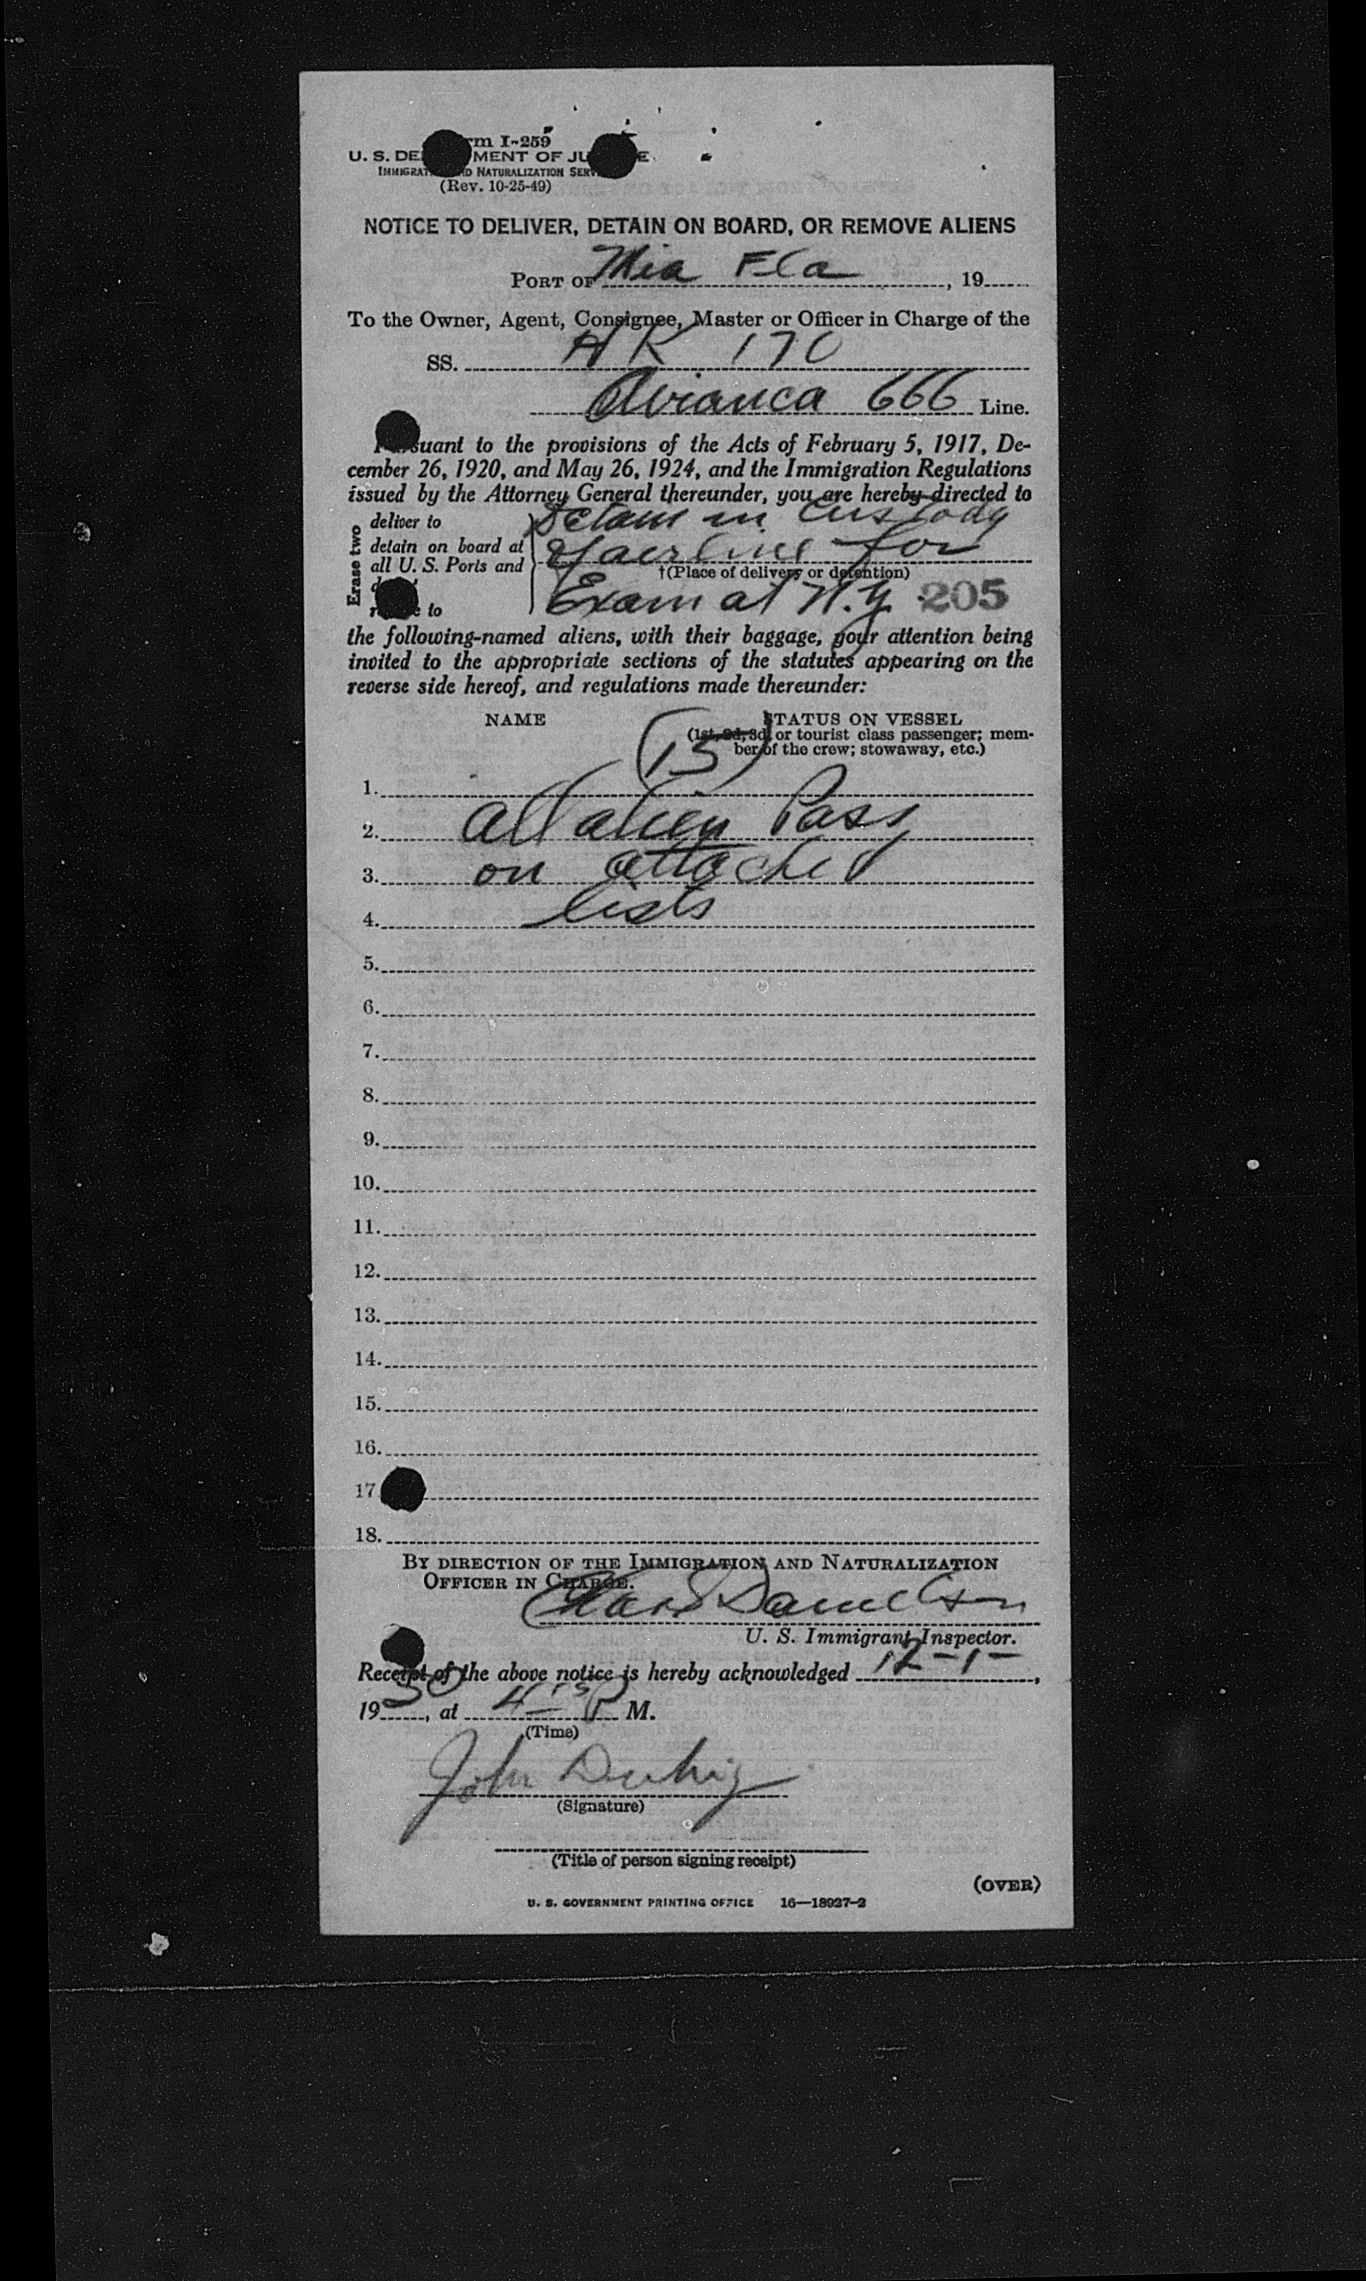 Form I-259
U. S. DEPARTMENT OF JUSTICE
IMMIGRATION AND NATURALIZATION SERVICE
(Rev. 10-25-49)
NOTICE TO DELIVER, DETAIN ON BOARD, OR REMOVE ALIENS
PORT OF Mia Fla, 19
To the Owner, Agent, Consignee, Master or Officer in Charge of the
SS. HK 170
Avianca 666 Line.
Pursuant to the provisions of the Acts of February 5, 1917, De-
cember 26, 1920, and May 26, 1924, and the Immigration Regulations
issued by the Attorney General thereunder, you are hereby directed to
Erase two
deliver to
detain on board at
all U. S. Ports and
to
Detain in Custody
of airline for
†(Place of delivery or detention)
Exam at N.Y. 205
the following-named aliens, with their baggage, your attention being
invited to the appropriate sections of the statutes appearing on the
reverse side hereof, and regulations made thereunder:
NAME STATUS ON VESSEL
(1st, 2d, 3d, or tourist class passenger; mem-
ber of the crew; stowaway, etc.)
(15)
1.
2. All alien Pass
3. on attached
4. lists
5.
6.
7.
8.
9.
10.
11.
12.
13.
14.
15.
16.
17
18.
BY DIRECTION OF THE IMMIGRATION AND NATURALIZATION
OFFICER IN CHARGE.
U. S. Immigrant Inspector.
Receipt of the above notice is hereby acknowledged 12-1-,
1950, at P M.
(Time)
John
(Signature)
(Title of person signing receipt)
(OVER)
U. S. GOVERNMENT PRINTING OFFICE 16—18927-2